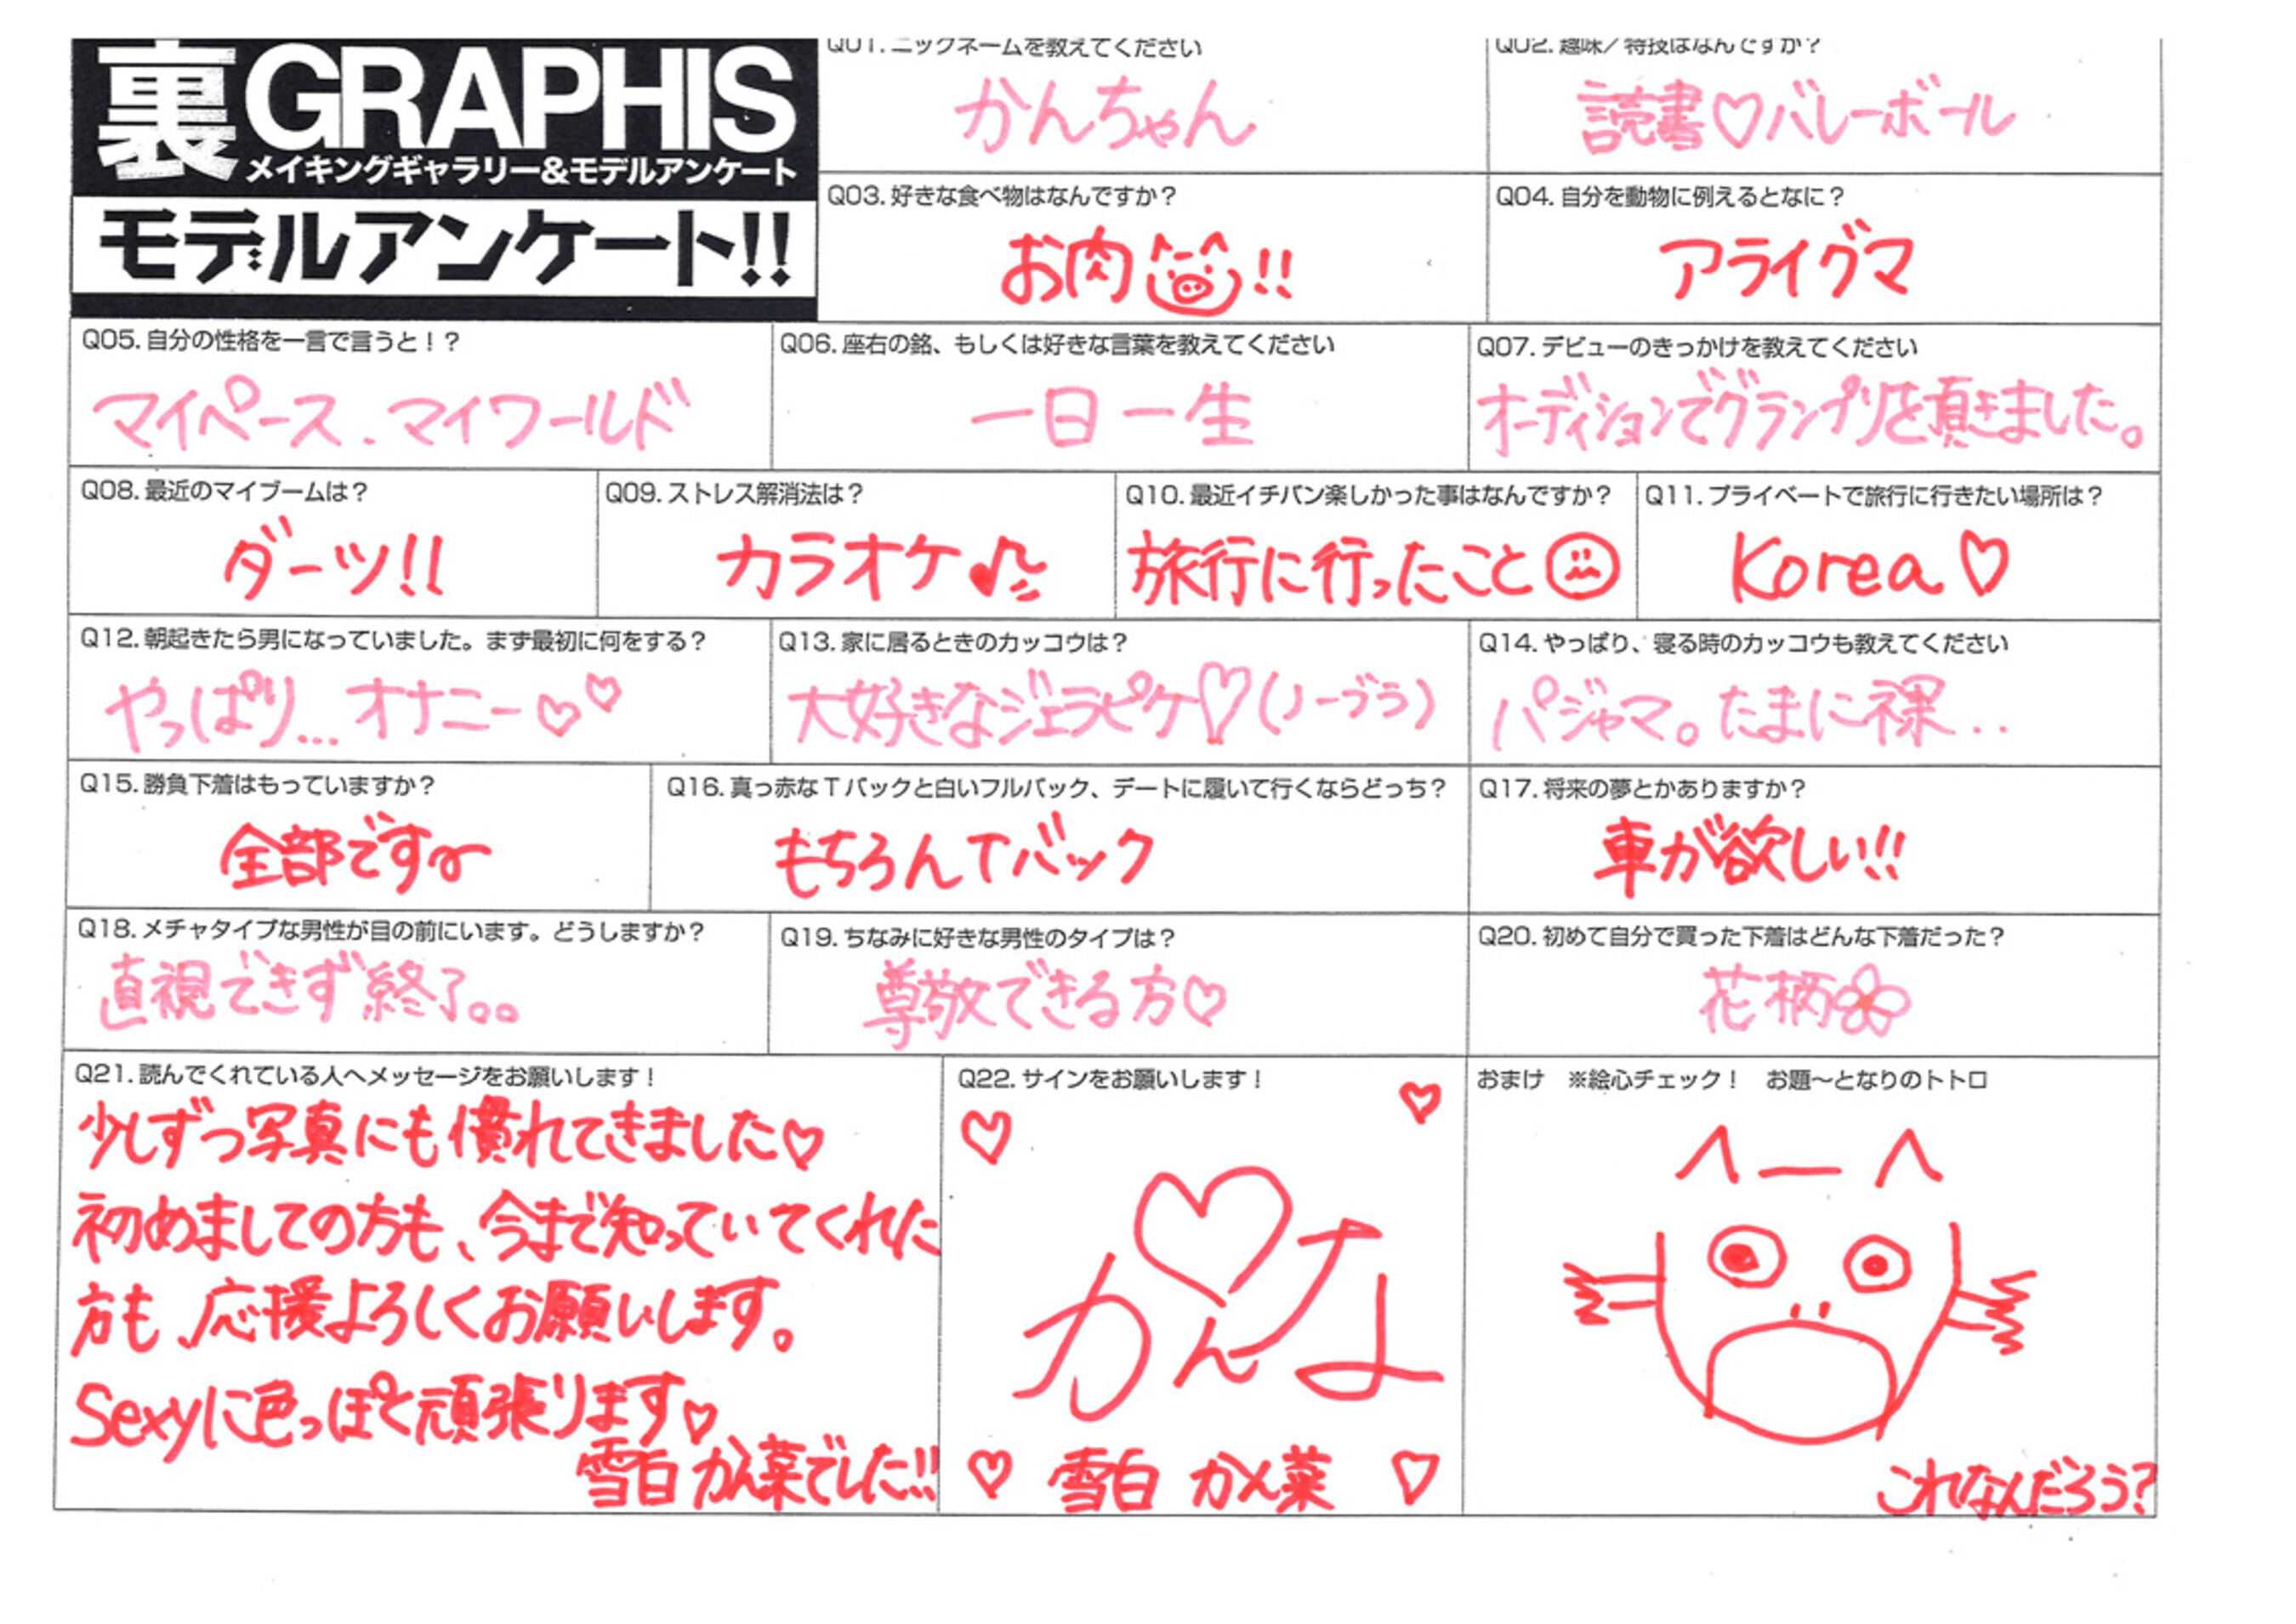 裏GRAPHIS
メイキングギャラリー&モデルアンケート
モデルアンケート!!
Q01.ニックネームを教えてください
かんちゃん
Q02.趣味／特技はなんですか？
読書♡バレーボール
Q03.好きな食べ物はなんですか？
お肉!!
Q04.自分を動物に例えるとなに？
アライグマ
Q05.自分の性格を一言で言うと！？
マイペース.マイワールド
Q06.座右の銘、もしくは好きな言葉を教えてください
一日一生
Q07.デビューのきっかけを教えてください
オーディションでグランプリを頂きました。
Q08.最近のマイブームは？
ダーツ!!
Q09.ストレス解消法は？
カラオケ♪
Q10.最近イチバン楽しかった事はなんですか？
旅行に行ったこと
Q11.プライベートで旅行に行きたい場所は？
Korea♡
Q12.朝起きたら男になっていました。まず最初に何をする？
やっぱり...オナニー♡♡
Q13.家に居るときのカッコウは？
大好きなジェラピケ♡(ノーブラ)
Q14.やっぱり、寝る時のカッコウも教えてください
パジャマ。たまに裸...
Q15.勝負下着はもっていますか？
全部です
Q16.真っ赤なTバックと白いフルバック、デートに履いて行くならどっち？
もちろんTバック
Q17.将来の夢とかありますか？
車が欲しい!!
Q18.メチャタイプな男性が目の前にいます。どうしますか？
直視できず終了。。
Q19.ちなみに好きな男性のタイプは？
尊敬できる方♡
Q20.初めて自分で買った下着はどんな下着だった？
花柄
Q21.読んでくれている人へメッセージをお願いします！
少しずつ写真にも慣れてきました♡
初めましての方も、今まで知っていてくれた
方も、応援よろしくお願いします。
Sexyに色っぽく頑張ります♡
雪白かん菜でした!!
Q22.サインをお願いします！
かんな
♡ 雪白 かん菜 ♡
おまけ ※絵心チェック！ お題〜となりのトトロ
これなんだろう?